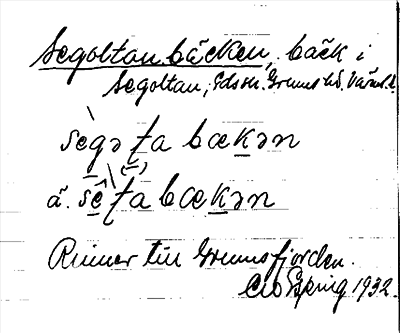 Segoltan bäcken, bäck i
Segoltan, Edssn. Grums hd. Värml.
segə ta bækən
ä. sê ta bækən
Rinner till Grumsfjorden.
1932.